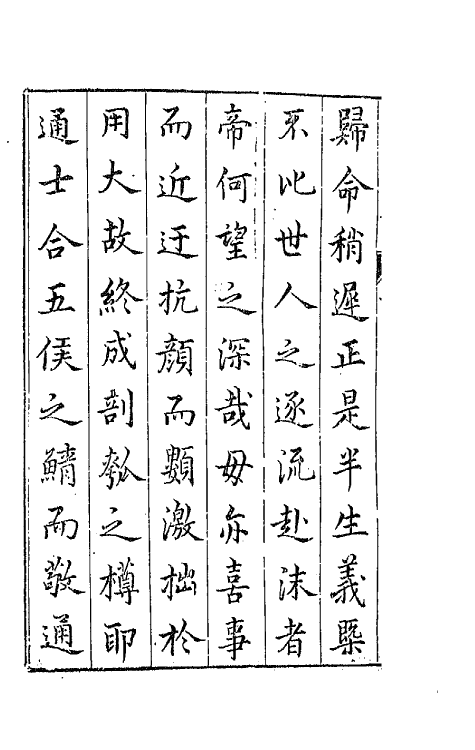 歸命稍遲正是半生義槩
不比世人之逐流赴沫者
帝何望之深哉毋亦喜事
而近迂抗顏而類激拙於
用大故終成剖瓠之樽即
通士合五侯之鯖而敬通